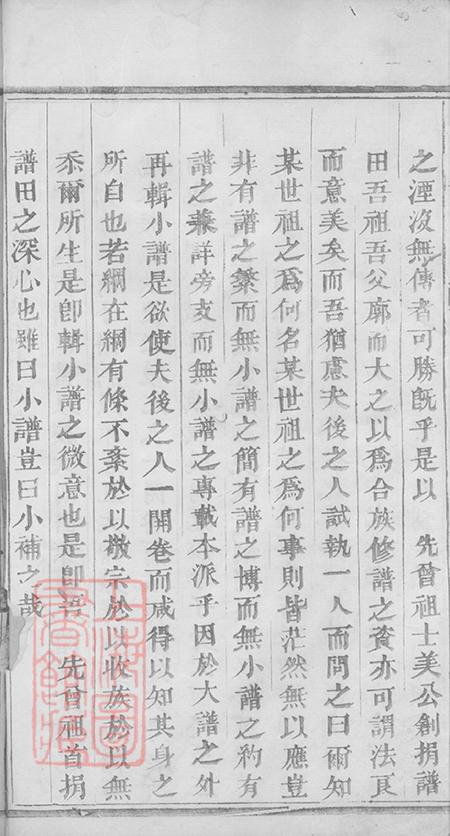 之湮沒無傳者可勝旣乎是以　先曾祖士美公創捐譜
田吾祖吾父廓而大之以爲合族修譜之資亦可謂法良
而意美矣而吾猶慮夫後之人試執一人而問之曰爾知
某世祖之爲何名某世祖之爲何事則皆茫然無以應豈
非有譜之繁而無小譜之簡有譜之博而無小譜之約有
譜之兼詳旁支而無小譜之專載本派乎因於大譜之外
再輯小譜是欲使夫後之人一開卷而咸得以知其身之
所自也若網在綱有條不紊於以敬宗於以收族於以無
忝爾所生是卽輯小譜之微意也是卽吾　先曾祖首捐
譜田之深心也雖曰小譜豈曰小補之哉